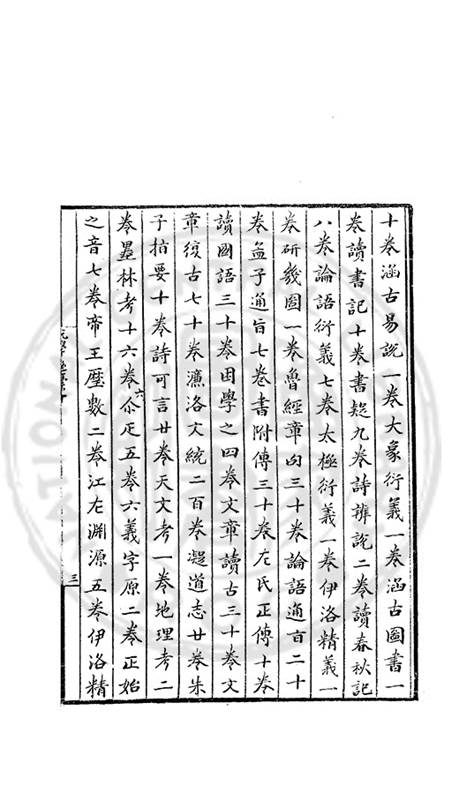 十卷涵古易説一卷大象衍義一卷涵古圖書一
卷讀書記十卷書疑九卷詩辨說二卷讀春秋記
八卷論語衍義七卷太極衍義一卷伊洛精義一
卷研幾圖一卷魯經章句三十卷論語通旨二十
卷孟子通旨七卷書附傳三十卷左氏正傳十卷
讀國語三十卷困學之四卷文章讀古三十卷文
章復古七十卷濂洛文統二百卷擬道志廿卷朱
子指要十卷詩可言廿卷天文考一卷地理考二
卷墨林考十六卷六五卷六義字原二卷正始
之音七卷帝王歷數二卷江左淵源五卷伊洛精
三